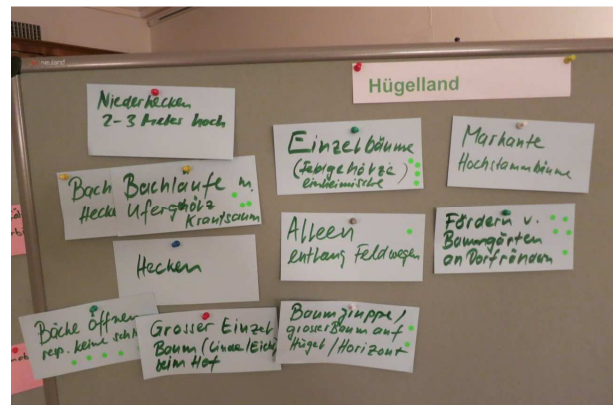 neuland
Hügelland
Niederhecken
2-3 Meter hoch
Einzelbäume
(Feldgehölze)
einheimische
Markante
Hochstammbäume
Bach
Heck
Bachläufe m.
Ufergehölz
Krautsaum
Alleen
entlang Feldwegen
Fördern v.
Baumgärten
an Dorfrändern
Hecken
Bäche öffnen
resp. keine
Grosser Einzel
Baum (Linde/Eiche)
beim Hof
Baumgruppe/
grosser Baum auf
Hügel/Horizont